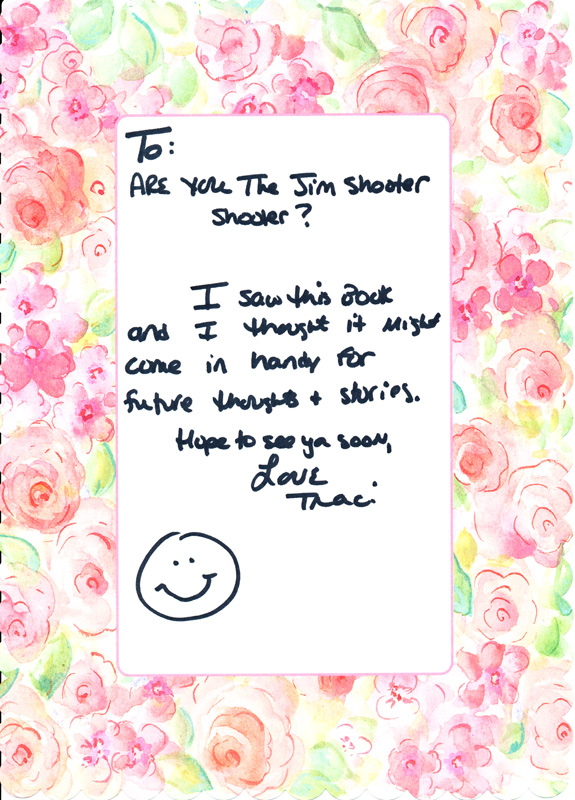 To:
ARE YOU The Jim Shooter
Shooter?
I saw this book
and I thought it might
come in handy for
future thoughts + stories.
Hope to see ya soon,
Love
Traci